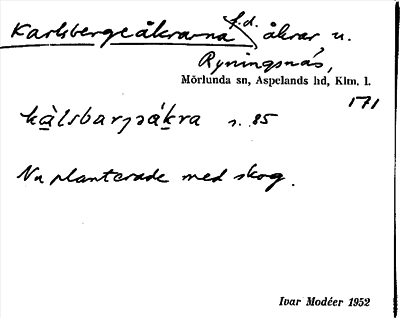 Karlsbergeåkrarna f.d. åkrar u.
Ryningsnäs,
Mörlunda sn, Aspelands hd, Klm. l.
171
kàlsbarjsákra s. 85
Nu planterade med skog.
Ivar Modéer 1952